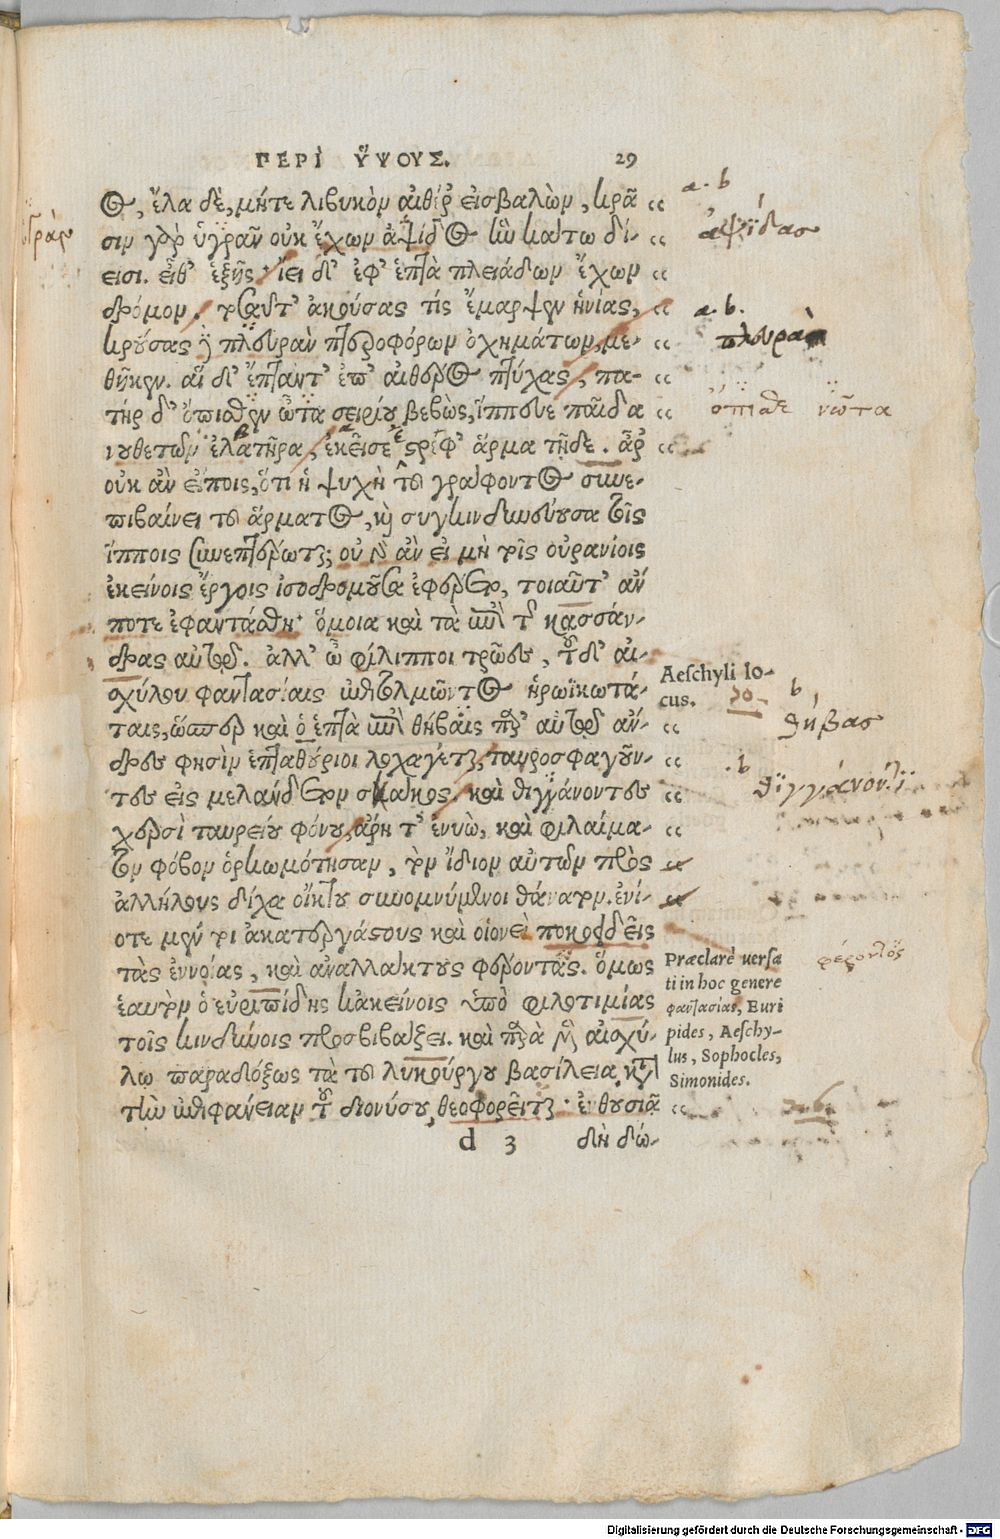 ΠΕΡῚ ὝΨΟΥΣ. 29
ος, ἔλα δὲ, μήτε λιβυκὸν αἰθέρ εἰσβαλὼν, κρᾶ
σιν γὰρ ὑγρὰν οὐκ ἔχων ἁψίδος
εισι. εἶθ' ἑξῆς· ἵει δ' ἐφ' ἑπτὰ πλειάδων ἔχων
δρόμον. τοσαῦτ' ἀκούσας τίς ἔμαρψεν ἡνίας,
κρούσας δὲ πλευρὰν πτεροφόρων ὀχημάτων, με-
θῆκεν. αἳ δ' ἔπταντ' ἐπ' αἰθέρος πτύχας, πα-
τὴρ δ' ὄπισθεν ὦτα σειρίου βεβὼς, ἵππευε παῖδα
νουθετῶν ἐλατῆρα, ἐκεῖσε στρέφ' ἅρμα τῇδε. ἆρ
οὐκ ἂν εἴποις, ὅτι ἡ ψυχὴ τοῦ γράφοντος συνε-
πιβαίνει τοῦ ἅρματος, καὶ συγκινδυνεύουσα τοῖς
ἵπποις συνεπτέρωται; οὐ γὰρ ἂν εἰ μὴ τοῖς οὐρανίοις
ἐκείνοις ἔργοις ἰσοδρομοῦσα ἐφέρετο, τοιαῦτ' ἄν
ποτε ἐφαντάσθη· ὅμοια καὶ τὰ ἐπὶ τῆς κασσάν-
δρας αὐτοῦ. ἀλλ' ὦ φίλιπποι τρῶες, τοῦ δ' αἰ-
σχύλου φαντασίαις ἐπιτολμῶντος ἡρωϊκωτά-
ταις, ὥσπερ καὶ ὁ ἑπτὰ ἐπὶ θήβαις παρ' αὐτοῦ ἄν-
δρες φησὶν ἑπταθύριοι λοχαγέται, ταυροσφαγοῦν-
τες εἰς μελάνδετον σάκος. καὶ θιγγάνοντες
χερσὶ ταυρείου φόνου, ἄρη τ' ἐνυὼ, καὶ φιλαίμα-
τον φόβον ὁρκωμότησαν, τὸν ἴδιον αὐτῶν πρὸς
ἀλλήλους δίχα οἴκτου συνομνύμενοι θάνατον. ἐνί-
οτε μέντοι ἀκατεργάστους καὶ οἱονεὶ ποκοειδεῖς
τὰς ἐννοίας, καὶ ἀναλλάκτους φέροντας. ὅμως
ἑαυτὸν ὁ εὐριπίδης κἀκείνοις ὑπὸ φιλοτιμίας
τοῖς κινδύνοις προσβιβάζει. καὶ παρὰ μὲν αἰσχύ-
λῳ παραδόξως τὰ τοῦ λυκούργου βασίλεια κατὰ
τὴν ἐπιφάνειαν τοῦ διονύσου θεοφορεῖται· ἐνθουσιᾷ
d 3 δὴ δώ-
Aeschyli lo-
cus.
Præclarè uersa
ti in hoc genere
φαντασίας, Euri
pides, Aeschy-
lus, Sophocles,
Simonides.
a. b
ἁψῖδας
a. b.
πλευρὰ
ὄπισθε νῶτα
b
θήβας
b
θιγγάνοντες
φέροντος